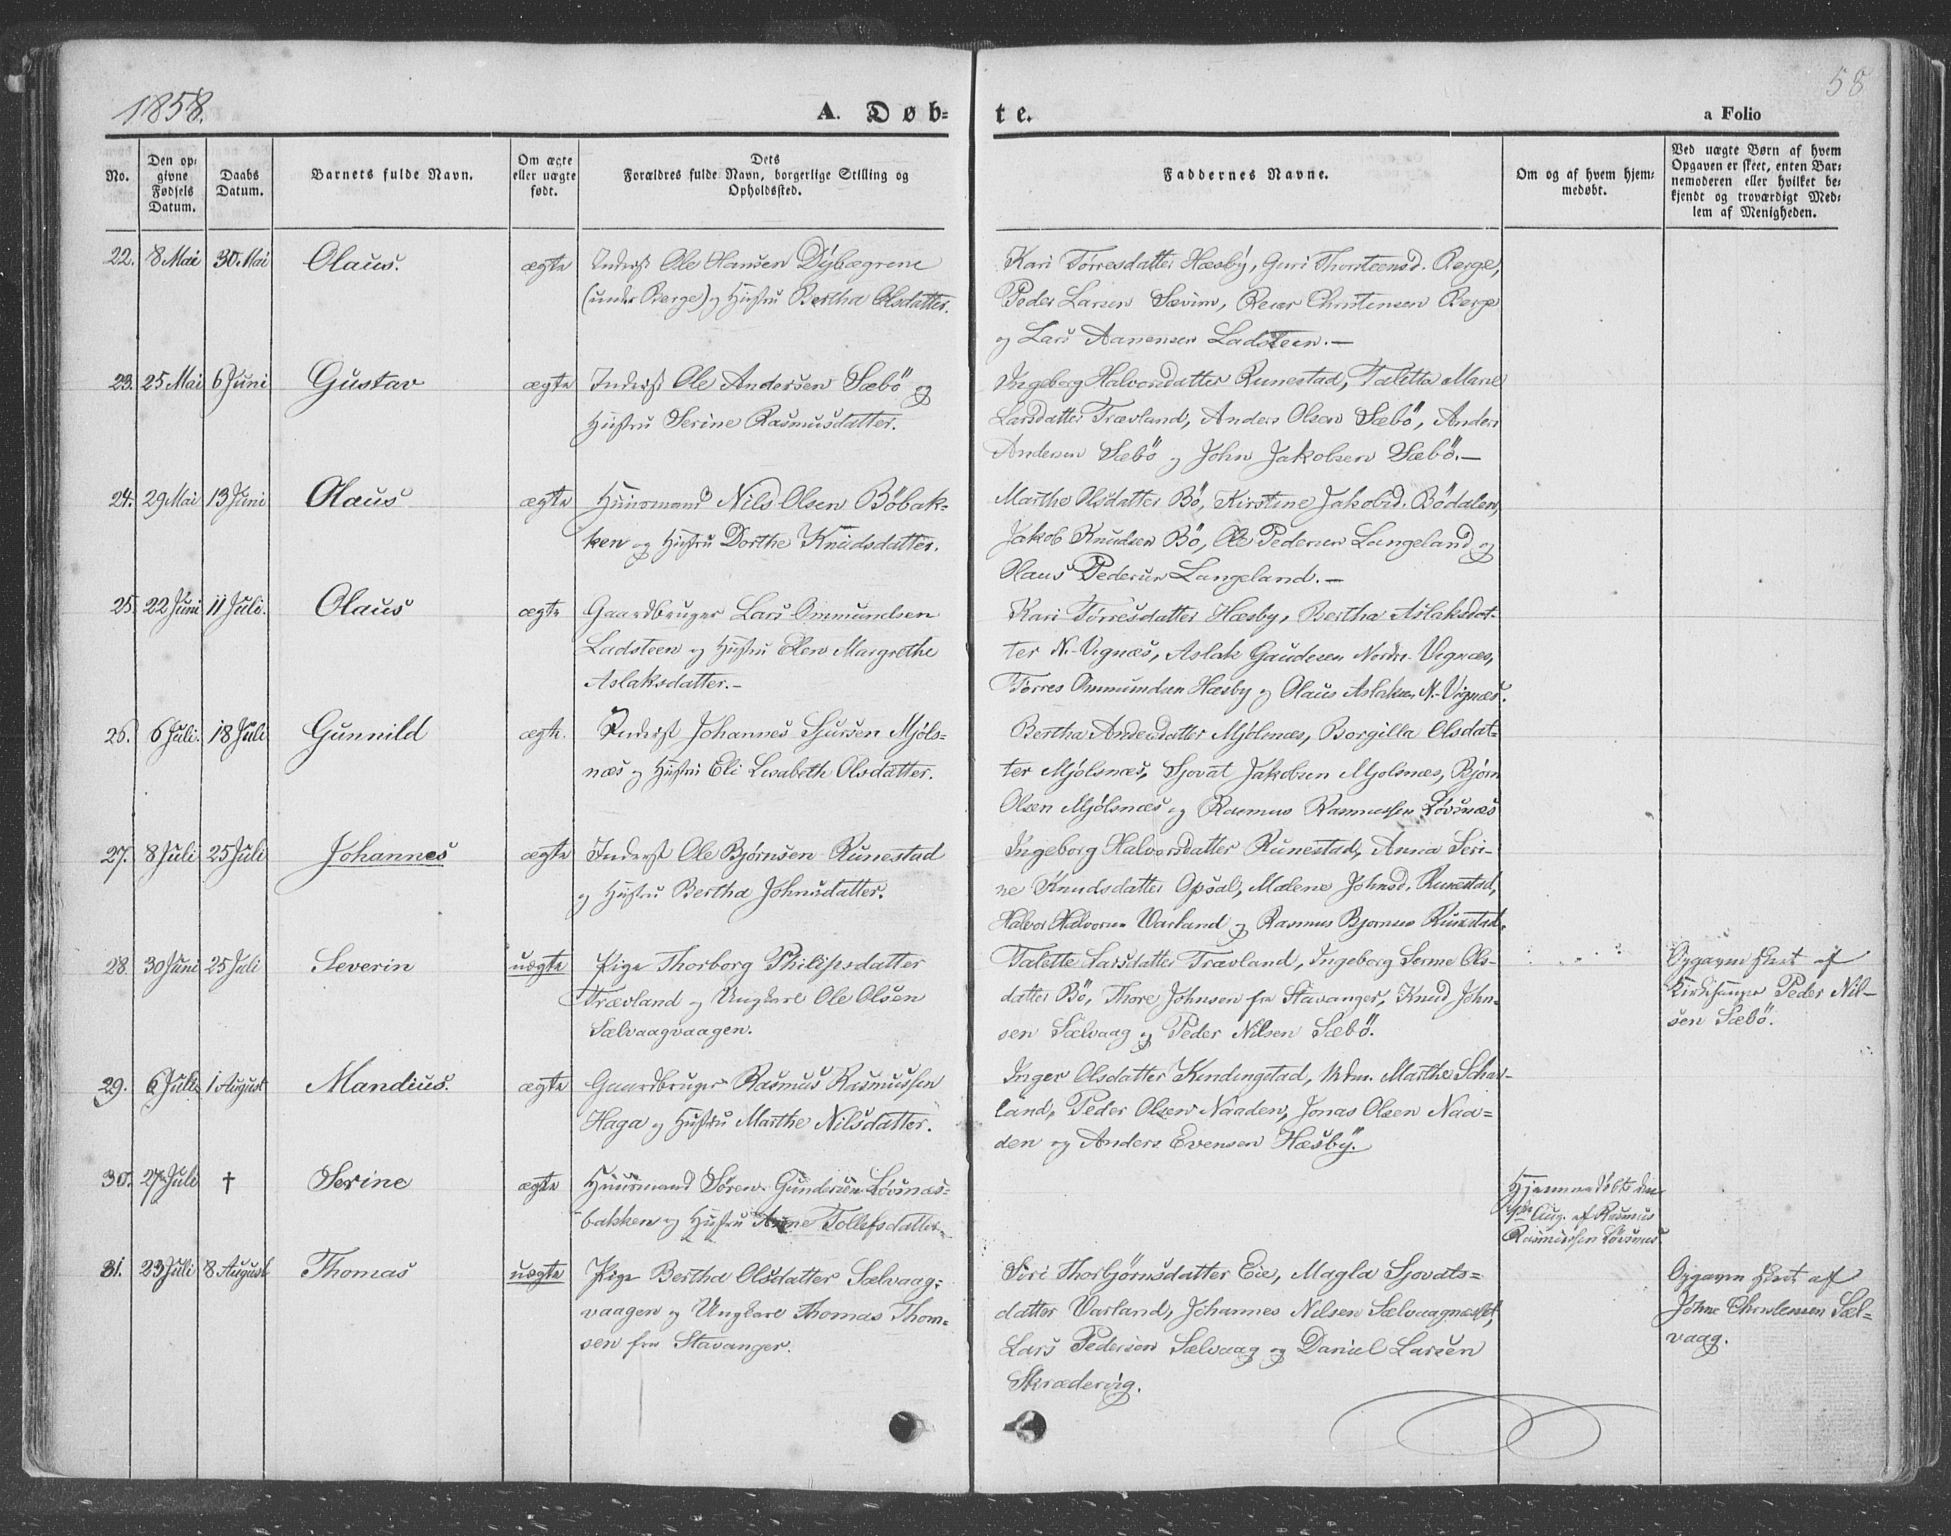 1858.
A. Døb-
te.
58
a Folio
No.
Den op-
givne
Fødsels
Datum.
Daabs
Datum.
Barnets fulde Navn.
Om ægte
eller uægte
født.
Dets
Forældres fulde Navn, borgerlige Stilling og
Opholdssted.
Faddernes Navne.
Om og af hvem hjem-
medøbt.
Ved uægte Børn af hvem
Opgaven er skeet, enten Bar-
nemoderen eller hvilket be-
kjendt og troværdigt Med-
lem af Menigheden.
22. 8 Mai 30. Mai Olaus. ægte Inderst Ole Hansen Dybægrene
(under Berge) og Hustru Bertha Olsdatter.
Kari Tørresdatter Hæsby, Guri Thorsteensd. Berge,
Peder Larsen Sævim, Reier Christensen Berge
og Lars Aanensen Ladsteen.—
23. 25 Mai 6 Juni Gustav ægte Inderst Ole Andersen Sæbö og
Hustru Serine Rasmusdatter.
Ingeborg Halvorsdatter Runestad, Taletta Marie
Larsdatter Trævland, Anders Olsen Sæbö, Anders
Andersen Sæbö og John Jakobsen Sæbö.—
24. 29 Mai 13 Juni Olaus ægte Huusmand Nils Olsen Böbak-
ken og Hustru Dorthe Knudsdatter.
Marthe Olsdatter Bö, Kirstine Jakobsd. Bödalen,
Jakob Knudsen Bö, Ole Pedersen Langeland og
Olaus Pedersen Langeland.—
25. 22 Juni 11 Juli. Olaus ægte Gaardbruger Lars Ommundsen
Ladsteen og Hustru Elen Margrethe
Aslaksdatter.-
Kari Tørresdatter Hæsby, Bertha Aslaksdat-
ter N. Vignæs, Aslak Gaudesen Nordre Vignæs,
Tørres Ommundsen Hæsby og Olaus Aslaksen N.- Vignæs.
26. 6 Juli. 18 Juli Gunnild ægte. Inderst Johannes Sjursen Mjöls-
næs og Hustru Eli Lisabeth Olsdatter.
Bertha Andersdatter Mjölsnæs, Borgilla Olsdat-
ter Mjölsnæs, Sjovat Jakobsen Mjolsnæs, Bjørn
Olsen Mjölsnæs og Rasmus Rasmussen Løvsnæs
27. 8 Juli 25 Juli Johannes ægte Inderst Ole Bjørnsen Runestad
og Hustru Bertha Johnsdatter.
Ingeborg Halvorsdatter Runestad, Anna Seri-
ne Knudsdatter Opsal, Malene Johnsd. Runestad,
Halvor Halvorsen Varland og Rasmus Bjornsen Runestad.
28 30 Juni 25 Juli Severin uægte Pige Thorborg Philipsdatter
Trævland og Ungkarl Ole Olsen
Sælvaagvaagen.
Talette Larsdatter Trævland, Ingeborg Serine Ols-
datter Bö, Thore Johnsen fra Stavanger, Knud John-
sen Sælvaag og Peder Nilsen Sæbö.
Opgaven skeet af
Kirkesanger Peder Nil-
sen Sæbö.
29. 6 Juli 1 August Mandius. ægte Gaardbruger Rasmus Rasmussen
Haga og Hustru Marthe Nilsdatter.
Inger Olsdatter Kindingstad, Mdm. Marthe Schar-
land, Peder Olsen Naaden, Jonas Olsen Naa-
den og Anders Evensen Hæsby.
30. 27 Juli † Serine ægte Huusmand Søren Gundersen Løvsnæs-
bakken og Hustru Anne Tollefsdatter.
Hjemmedøbt den
1ste Aug. af Rasmus
Rasmussen Løvsnæs
31. 23 Juli 8 August Thomas uægte Pige Bertha Olsdatter Sælvaag-
vaagen og Ungkarl Thomas Thom-
sen fra Stavanger.
Siri Thorbjørnsdatter Eie, Magla Sjovats-
datter Varland, Johannes Nilsen Sælvaagnæsset,
Lars Pedersen Sælvaag og Daniel Larsen
Skrædervig.
Opgaven skeet af
Johne Christensen Sæl-
vaag.